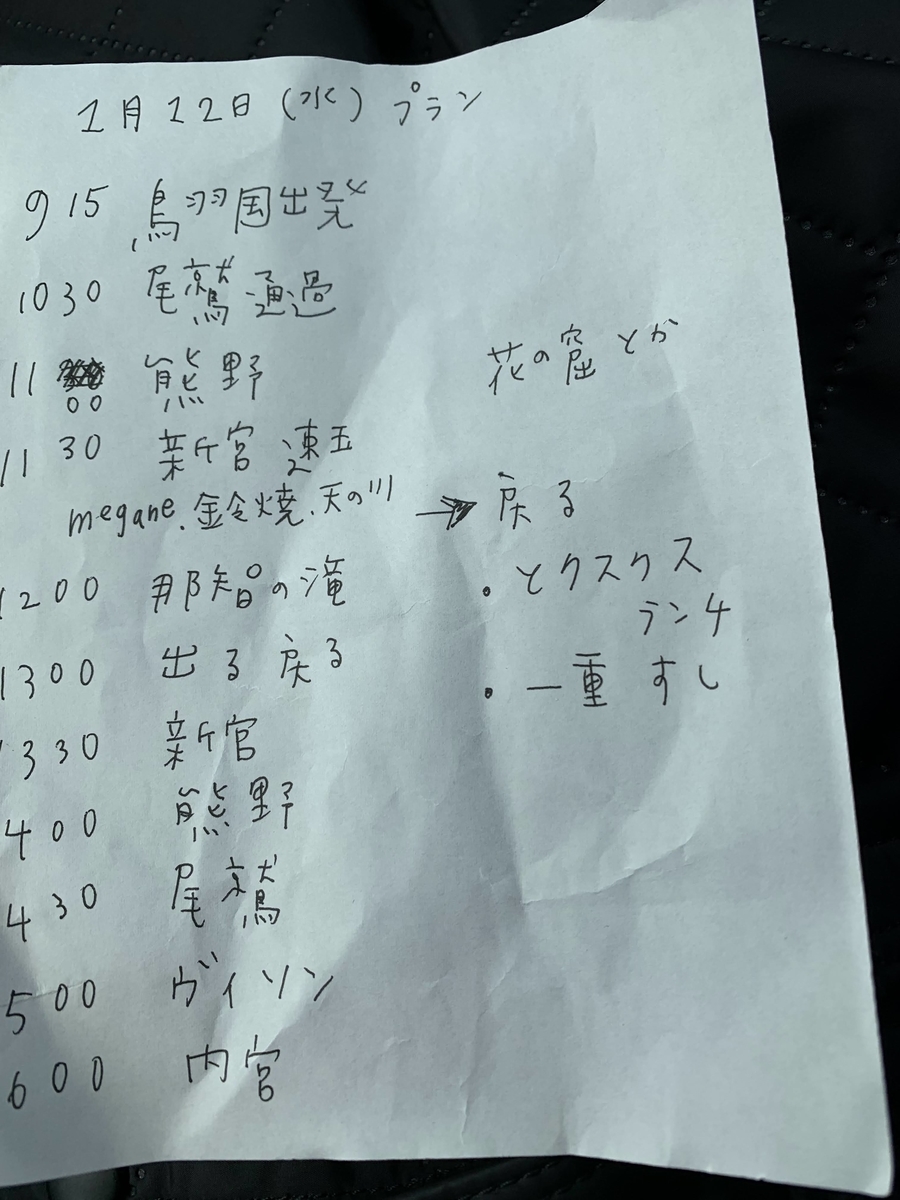 1月12日(水) プラン
9 15 鳥羽国出発
10 30 尾鷲 通過
11 00 熊野 花の窟 とか
11 30 新宮 速玉
megane.鈴焼.天の川 → 戻る
1200 那智の滝 ・とクスクス
ランチ
1300 出る 戻る ・一重 すし
330 新宮
400 熊野
430 尾鷲
500 ヴィソン
600 内宮